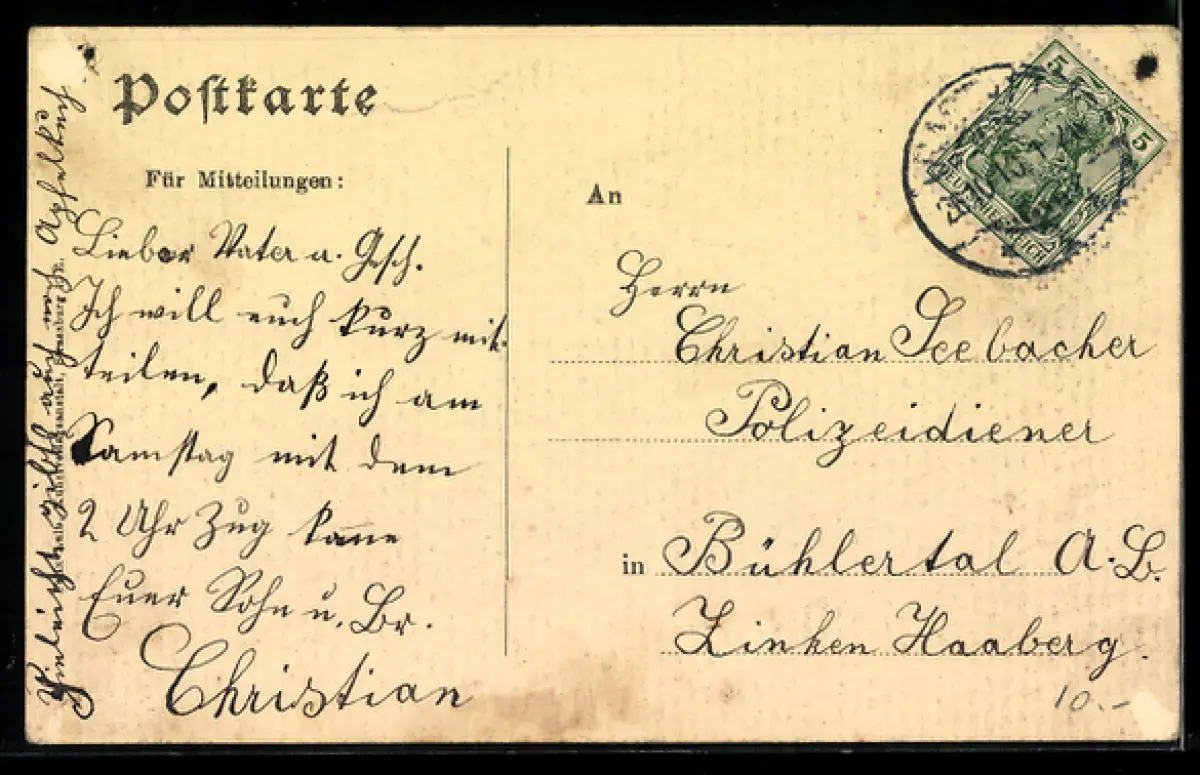 Postkarte
Für Mitteilungen:
Lieber Vater u. Gsch.
Ich will euch kurz mit-
teilen, daß ich am
Samstag mit dem
2 Uhr Zug kome
Euer Sohn u. Br.
Christian
Vieleicht gibts auch noch
An
Herrn
Christian Seebacher
Polizeidiener
in Bühlertal A. B.
Zinken Haaberg.
10.-
5 5